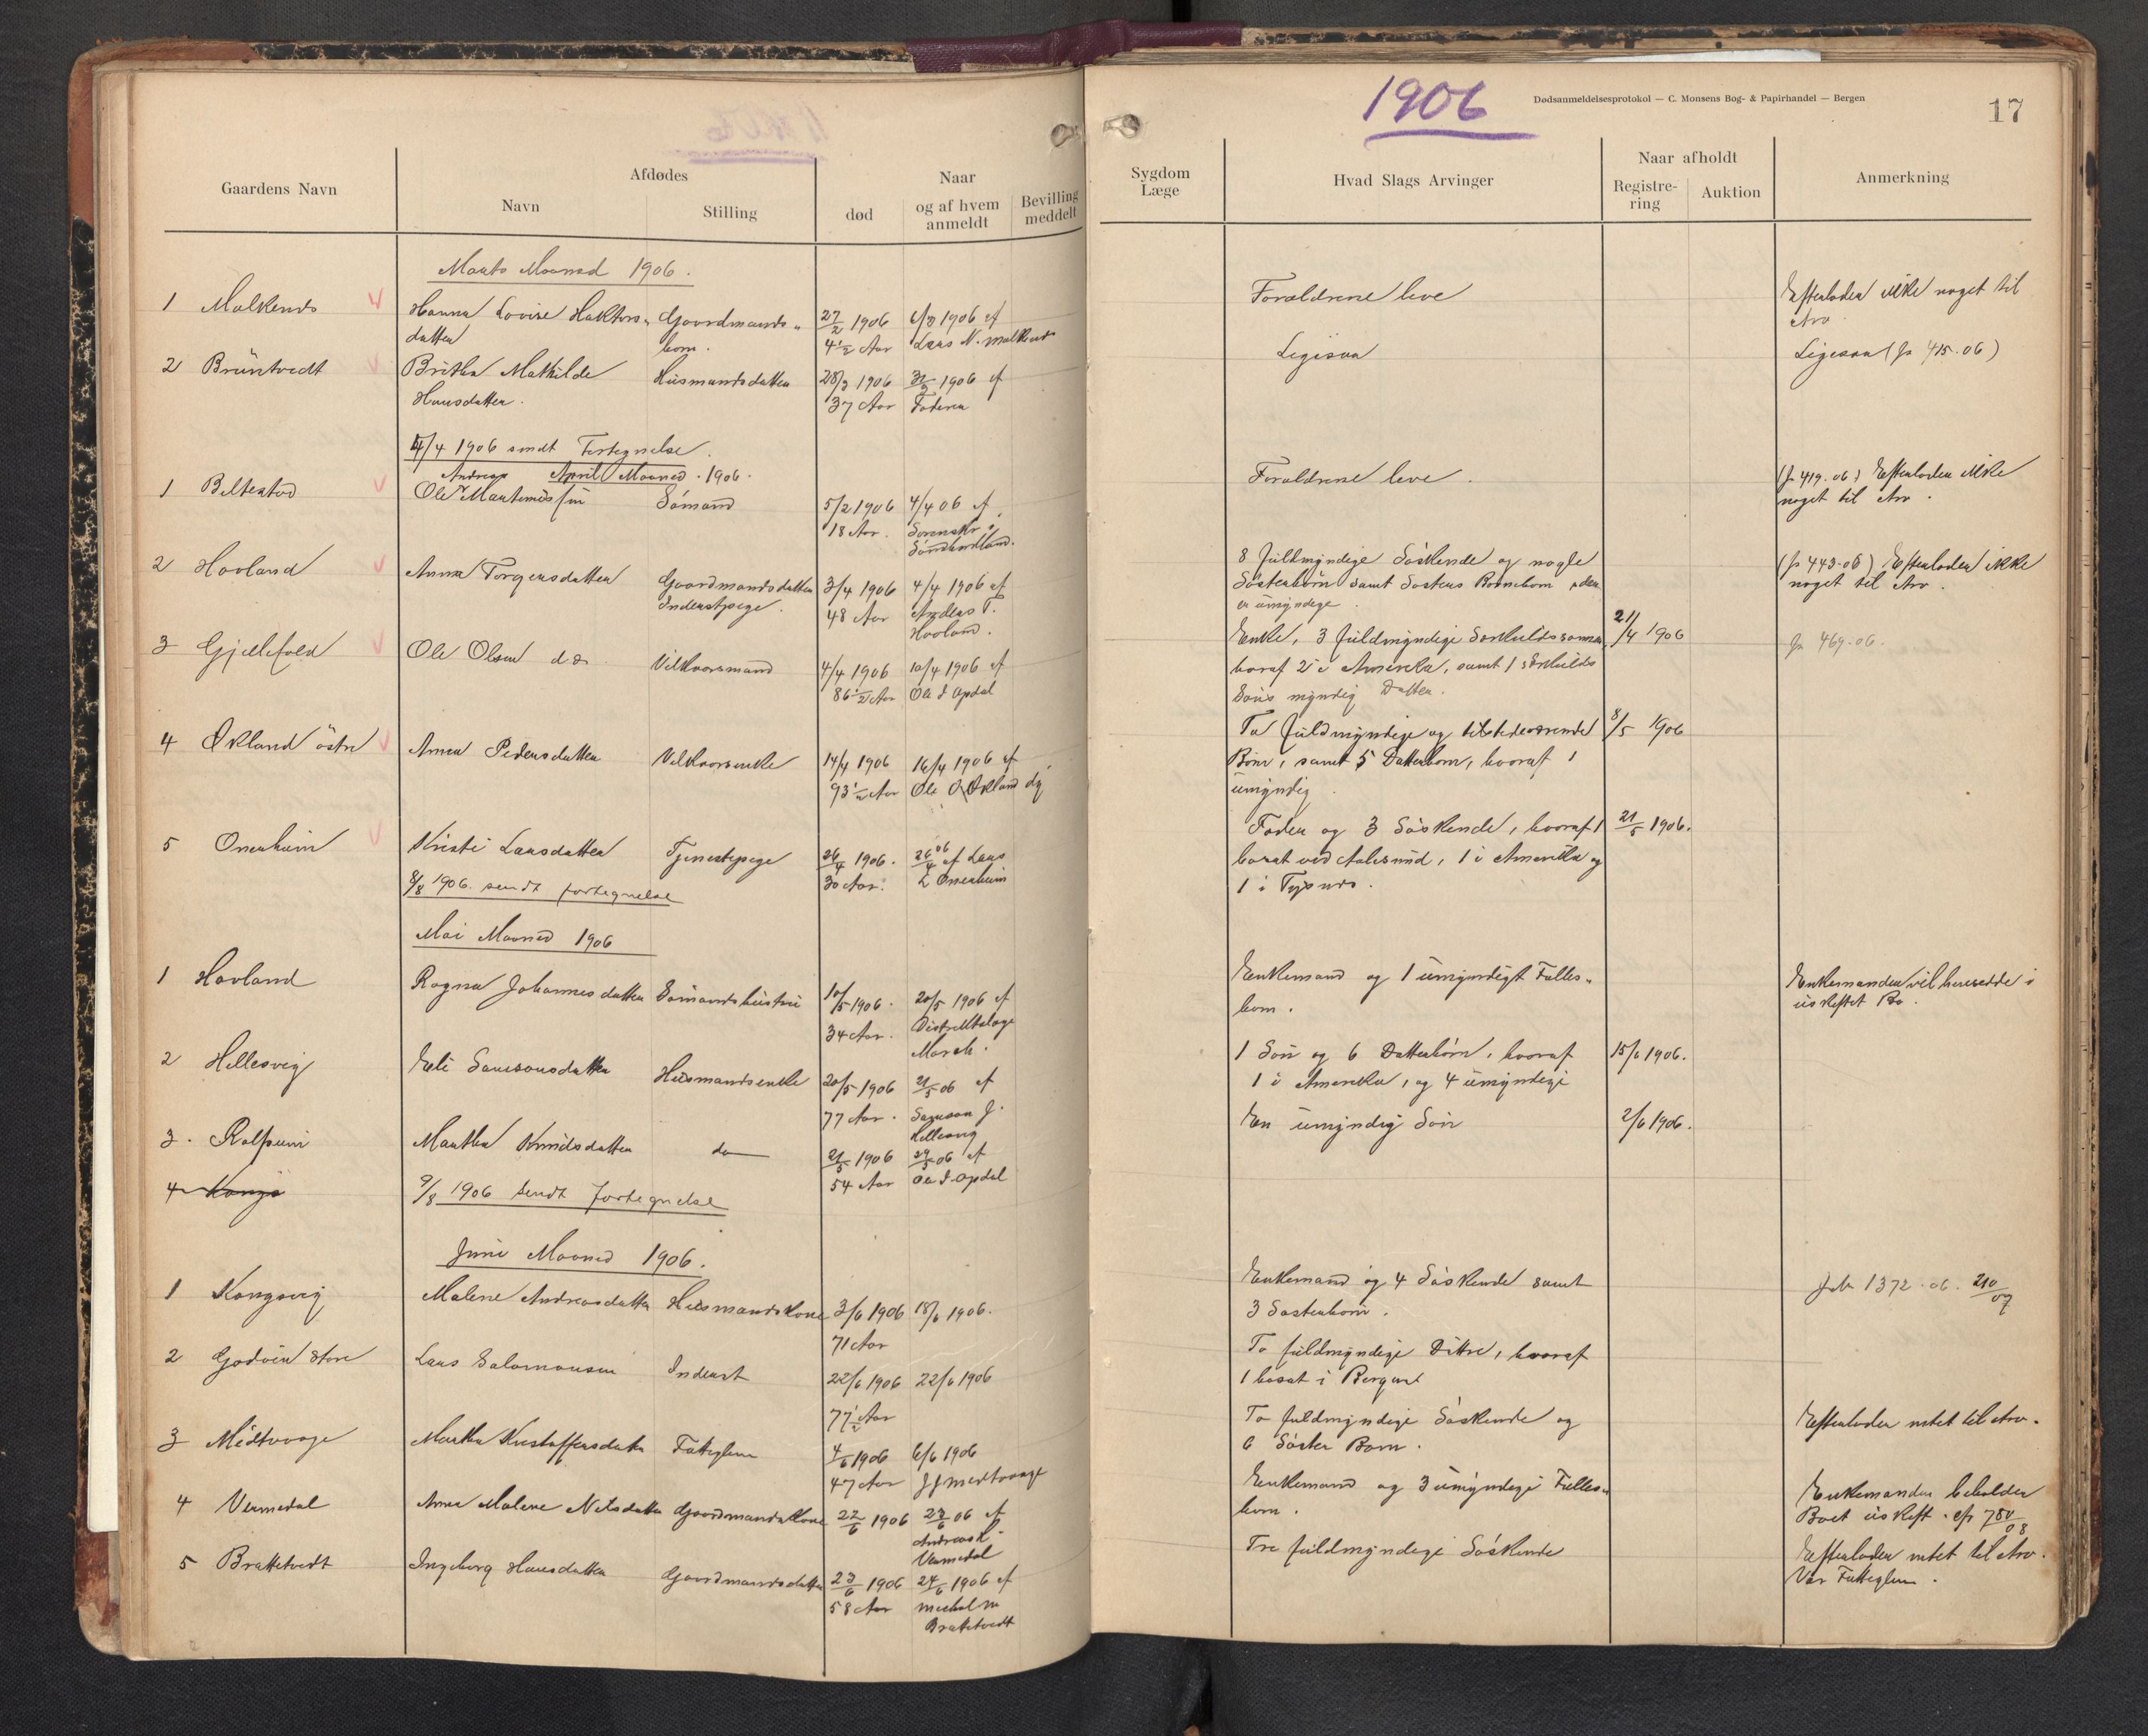 1906
Dødsanmeldelsesprotokol — C. Monsens Bog- & Papirhandel — Bergen
17
Gaardens Navn
Afdødes
Navn
Stilling
Naar
død
og af hvem
anmeldt
Bevilling
meddelt
Sygdom
Læge
Hvad Slags Arvinger
Naar afholdt
Registre-
ring
Auktion
Anmerkning
Marts Maaned 1906.
1 Malkenes Hanna Lovise Gaardmands-
datter barn.
27/2 1906 6/3 1906 af
4½ Aar Lars N. Malkenes
Forældrene leve
Efterlader ikke noget til
Arv
2 Bruntvedt Britha Mathilde Husmandsdatter 28/3 1906 31/3 1906 af
Hansdatter. 37 Aar Faderen
Ligesaa
Ligesaa (Js 415.06)
4/4 1906 sendt Fortegnelse.
April Maaned 1906.
Andreas
1 Beltestad Ole Martinussen Sømand 5/2 1906 4/4 06 af
18 Aar. Sorenskr i
Søndhordland.
Forældrene leve.
(Js 419.06) Efterlader ikke
noget til Arv.
2 Hovland Anna Torgersdatter Gaardmandsdatter 3/4 1906 4/4 1906 af
Inderstpige. 48 Aar Anders T.
Hovland.
8 fuldmyndige Søskende og nogle
Søsterbørn samt Søsters Børnebørn
er umyndige.
(Js 443.06) Efterlader ikke
noget til Arv.
3 Gjellefald Ole Olsen d.æ. Vilkaarsmand 4/4 1906 10/4 1906 af
86½ Aar Ole J Opdal
Enke, 3 fuldmyndige Særkuldssønner,
hvoraf 2 i Amerika, samt 1 særkulds
Søns myndig Datter.
21/4 1906
Js 469.06.
4 Økland østre Anna Pedersdatter Vilkaarsenke 14/4 1906 16/4 1906 af
93½ Aar Ole O Økland dy
To fuldmyndige og tilstedeværende
Børn, samt 5 Datterbørn, hvoraf 1
umyndig.
8/5 1906
5 Onarheim Kristi Larsdatter Tjenestepige 26/4 1906. 26/4 06 af Lars
30 Aar. L Onarheim
Fader og 3 Søskende, hvoraf 1
bosat ved Aalesund, 1 i Amerika og
1 i Tysnes.
21/5 1906.
8/8 1906. sendt fortegnelse
Mai Maaned 1906
1 Hovland Ragna Johannesdatter Sømandshustru 10/5 1906. 20/5 1906 af
34 Aar. Distriktslæge
Enkemand og 1 umyndigt Fælles-
barn.
Enkemanden vil hensidde i
uskiftet Bo.
2 Hellesvig Eli Samsonsdatter Husmandsenke 20/5 1906 21/5 06 af
77 Aar. Samson J.
Hellesvig
1 Søn og 6 Datterbørn, hvoraf
1 i Amerika, og 4 umyndige
15/6 1906.
3. Martha Knudsdatter do 21/5 1906 29/5 06 af
54 Aar Ole J Opdal
En umyndig Søn
2/6 1906.
4 Kongs
9/8 1906 sendt fortegnelse
Juni Maaned 1906.
1 Kongsvig Malene Andreasdatter Husmandskone 3/6 1906 18/6 1906.
71 Aar
Enkemand og 4 Søskende samt
3 Søsterbørn.
1372.06. 210/07
2 Godøen store Lars Salomonsen Inderst 22/6 1906 22/6 1906
77½ Aar
To fuldmyndige Døttre, hvoraf
1 bosat i Bergen
3 Midtvaage Martha Kristoffersdatter Fattiglem 4/6 1906 6/6 1906
47 Aar J J Midtvaage
To fuldmyndige Søskende og
6 Søster Børn.
Efterlader intet til Arv.
4 Vermedal Anna Malene Nilsdatter Gaardmandskone 22/6 1906 23/6 06 af
Vermedal
Enkemand og 3 umyndige Fælles-
børn.
Enkemanden beholder
Boet uskift. 780/08
5 Brattetvedt Ingeborg Hansdatter Gaardmandsdatter 23/6 1906 24/6 1906 af
58 Aar Michel M
Brattetvedt
Tre fuldmyndige Søskende
Efterlader intet til Arv.
Var Fattiglem.